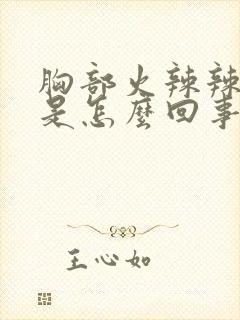 胸部火辣辣
是怎麼回事
王心如